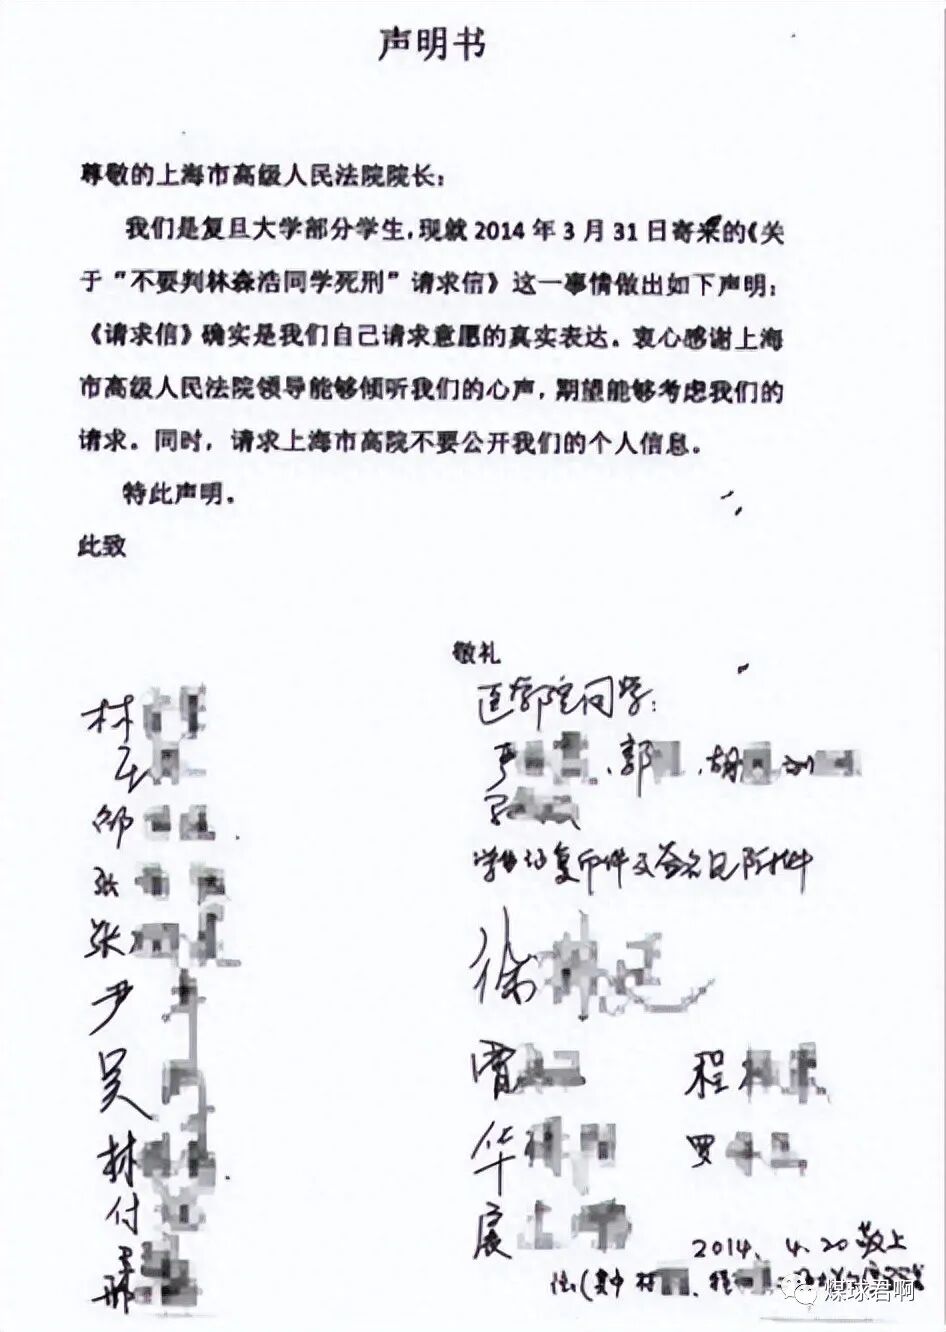 声明书
尊敬的上海市高级人民法院院长：
我们是复旦大学部分学生，现就 2014 年 3 月 31 日寄来的《关
于“不要判林森浩同学死刑”请求信》这一事情做出如下声明：
《请求信》确实是我们自己请求意愿的真实表达。衷心感谢上海
市高级人民法院领导能够倾听我们的心声，期望能够考虑我们的
请求。同时，请求上海市高院不要公开我们的个人信息。
特此声明。
此致
敬礼
林
邵
张
张
尹
吴
林
付
医学院同学：
严 、郭 、胡 、刘
学生证复印件及签名见附件
徐
曹 程
华 罗
展
2014. 4. 20 敬上
煤球君啊